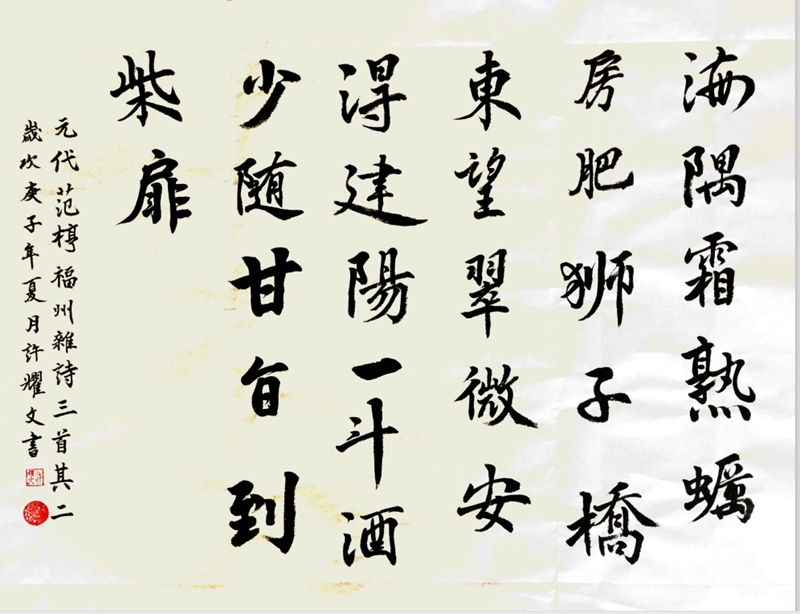 海隅霜熟蠣
房肥狮子橋
東望翠微安
淂建陽一斗酒
少随甘旨到
柴扉
元代范梈福州雜詩三首其二
歲次庚子年夏月許耀文書